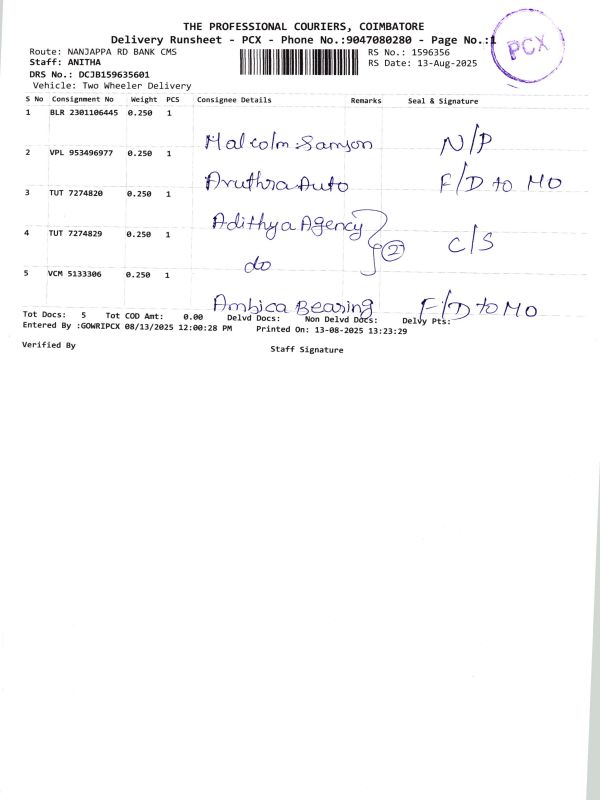 THE PROFESSIONAL COURIERS, COIMBATORE
Delivery Runsheet - PCX - Phone No.:9047080280 - Page No.:1
PCX
Route: NANJAPPA RD BANK CMS
RS No.: 1596356
Staff: ANITHA
RS Date: 13-Aug-2025
DRS No.: DCJB159635601
Vehicle: Two Wheeler Delivery
S No Consignment No Weight PCS Consignee Details Remarks Seal & Signature
1 BLR 2301106445 0.250 1
Malcolm Samson N/P
2 VPL 953496977 0.250 1
Aruthra Auto F/D to MO
3 TUT 7274820 0.250 1
Adithya Agency
4 TUT 7274829 0.250 1
2 C/S
do
5 VCM 5133306 0.250 1
Ambica Bearing F/D to MO
Tot Docs: 5 Tot COD Amt: 0.00 Delvd Docs: Non Delvd Docs: Delvy Pts:
Entered By :GOWRIPCX 08/13/2025 12:00:28 PM Printed On: 13-08-2025 13:23:29
Verified By Staff Signature